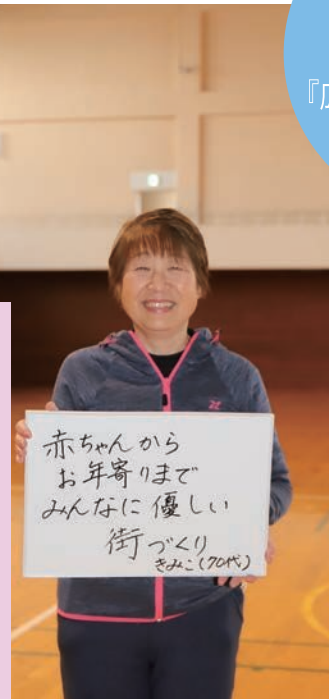 赤ちゃんから
お年寄りまで
みんなに優しい
街づくり
きみこ(70代)